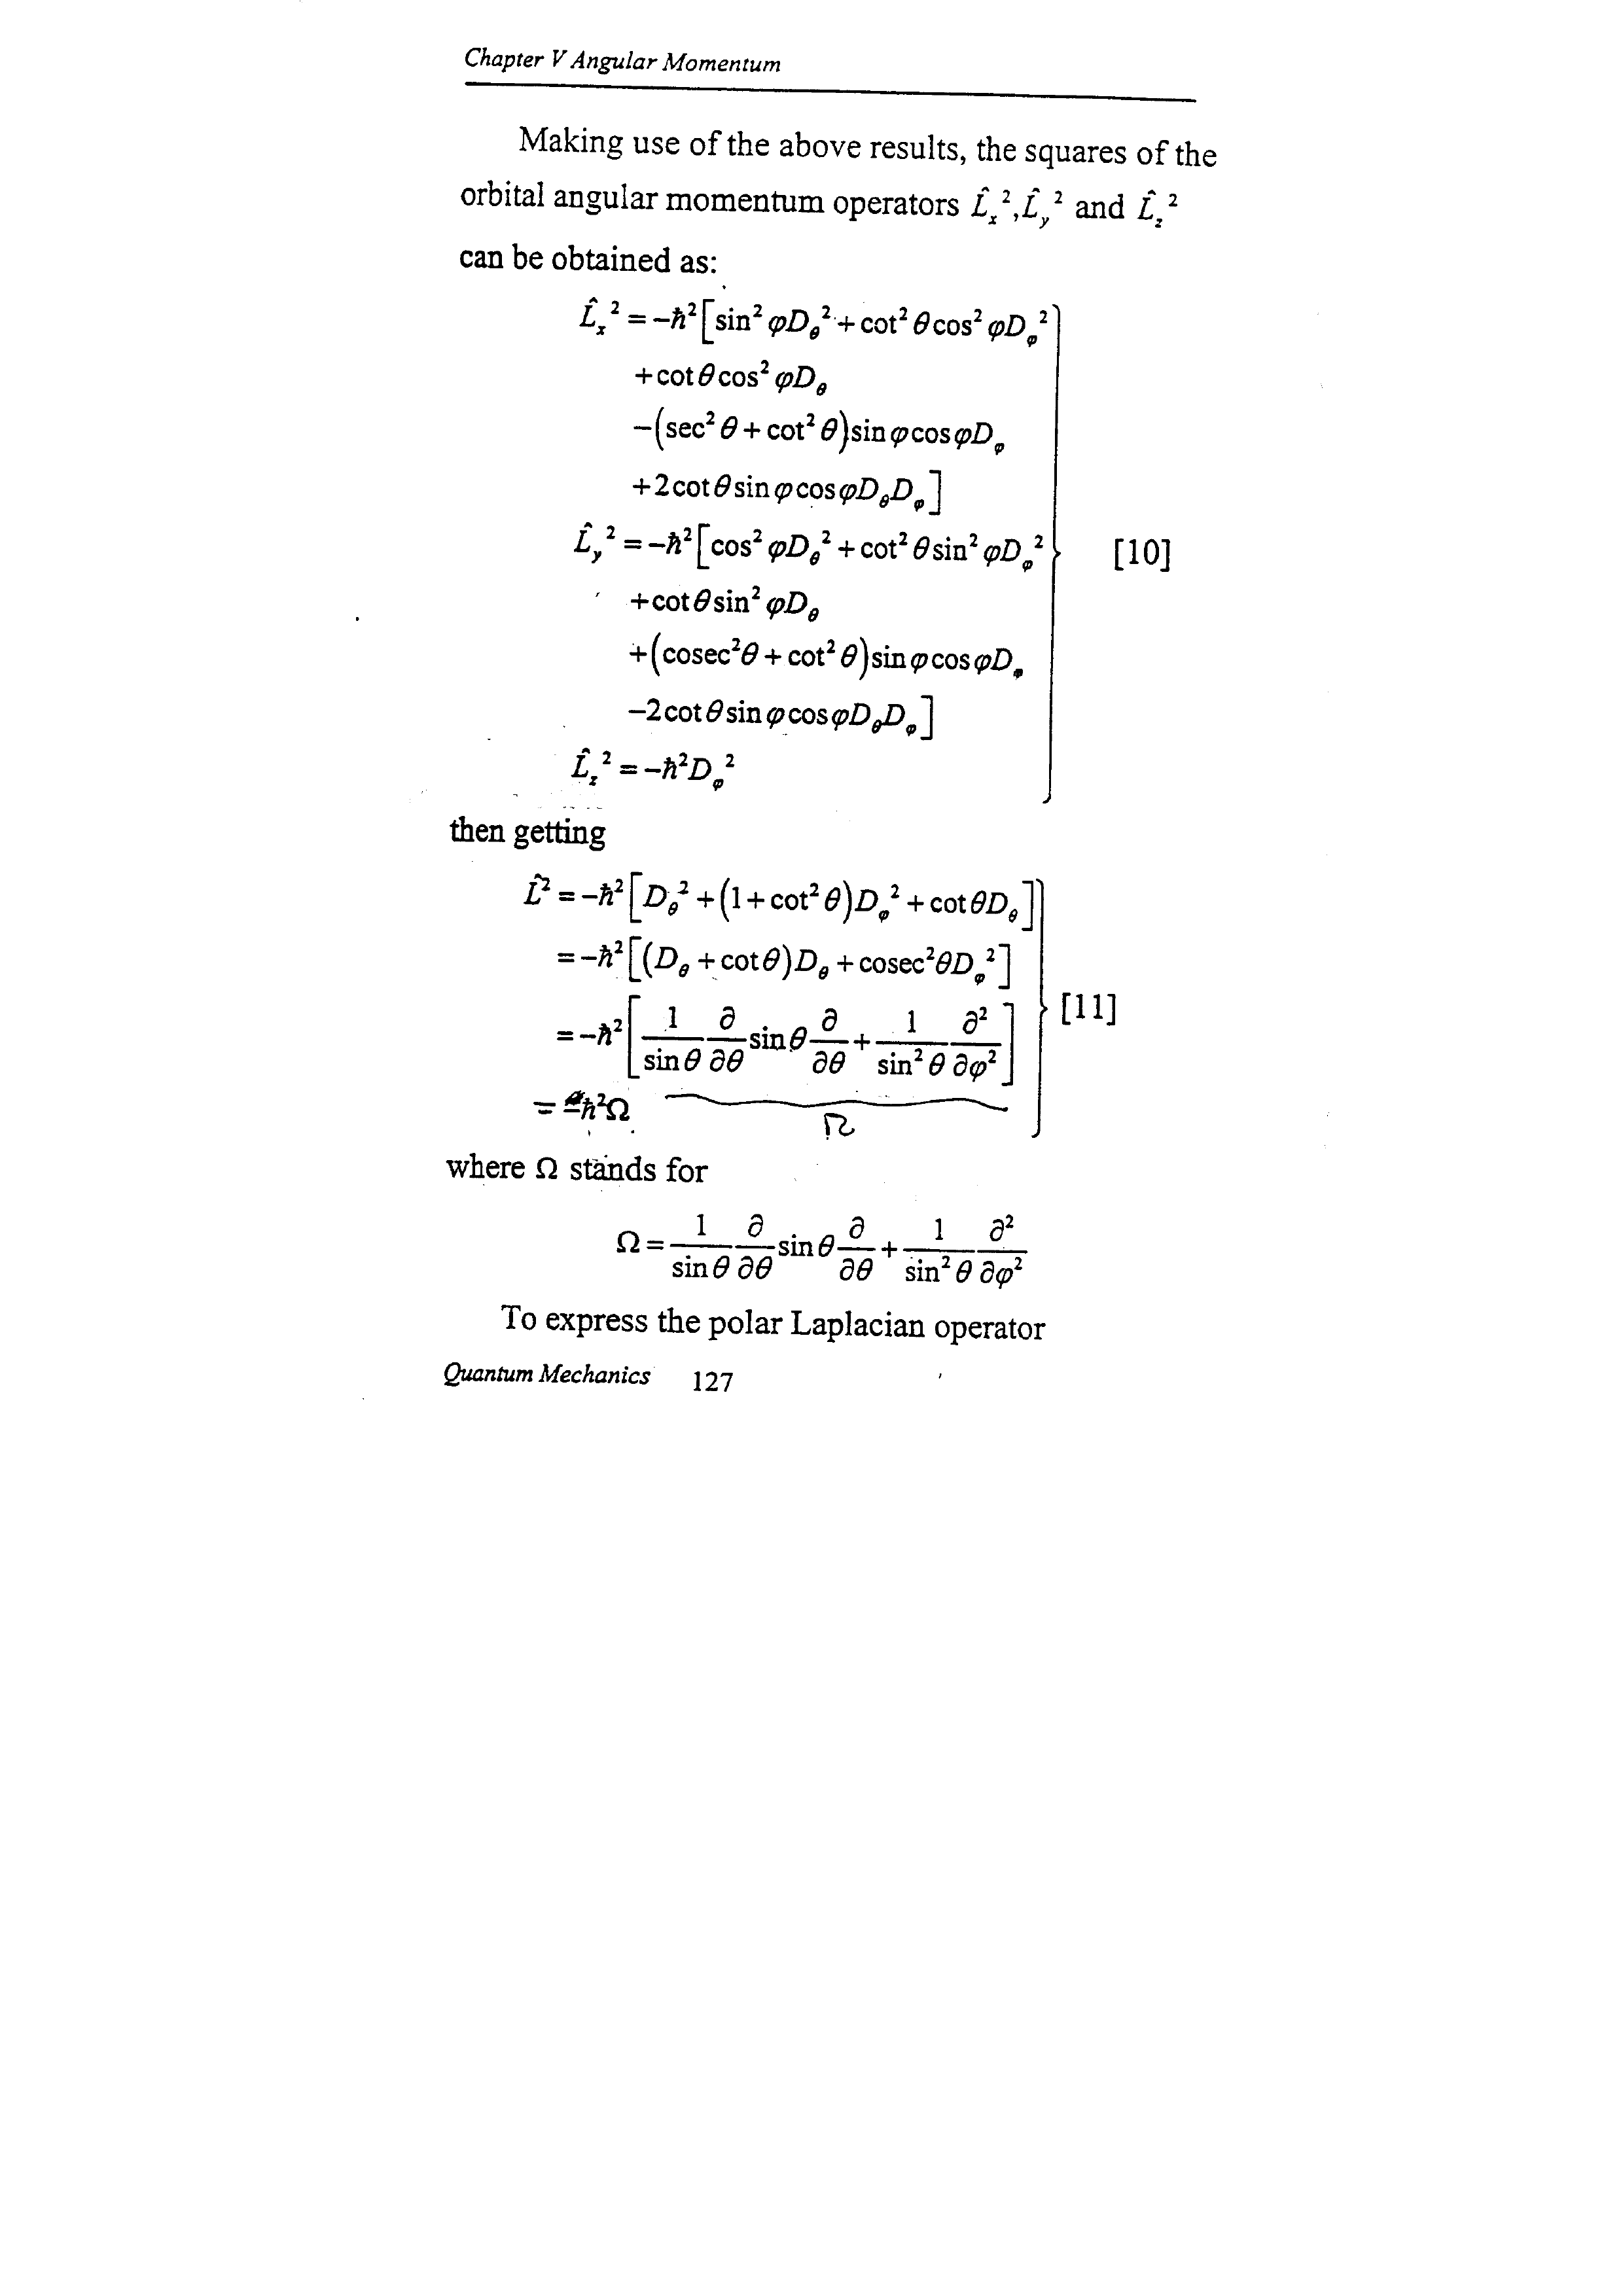 Chapter V Angular Momentum
Making use of the above results, the squares of the
orbital angular momentum operators L̂ₓ², L̂_y² and L̂_z²
can be obtained as:
L̂ₓ² = −ħ²[sin² φD_θ² + cot² θ cos² φD_φ²
+ cot θ cos² φD_θ
−(sec² θ + cot² θ) sin φ cos φD_φ
+2 cot θ sin φ cos φD_θD_φ]
L̂_y² = −ħ²[cos² φD_θ² + cot² θ sin² φD_φ² [10]
+ cot θ sin² φD_θ
+(cosec²θ + cot² θ) sin φ cos φD_φ
−2 cot θ sin φ cos φD_θD_φ]
L̂_z² = −ħ²D_φ²
then getting
L̂² = −ħ²[D_θ² + (1 + cot² θ)D_φ² + cot θD_θ]
= −ħ²[(D_θ + cot θ)D_θ + cosec²θD_φ²]
= −ħ²[1/sin θ ∂/∂θ sin θ ∂/∂θ + 1/sin² θ ∂²/∂φ²] [11]
= −ħ²Ω
Ω
where Ω stands for
Ω = 1/sin θ ∂/∂θ sin θ ∂/∂θ + 1/sin² θ ∂²/∂φ²
To express the polar Laplacian operator
Quantum Mechanics 127